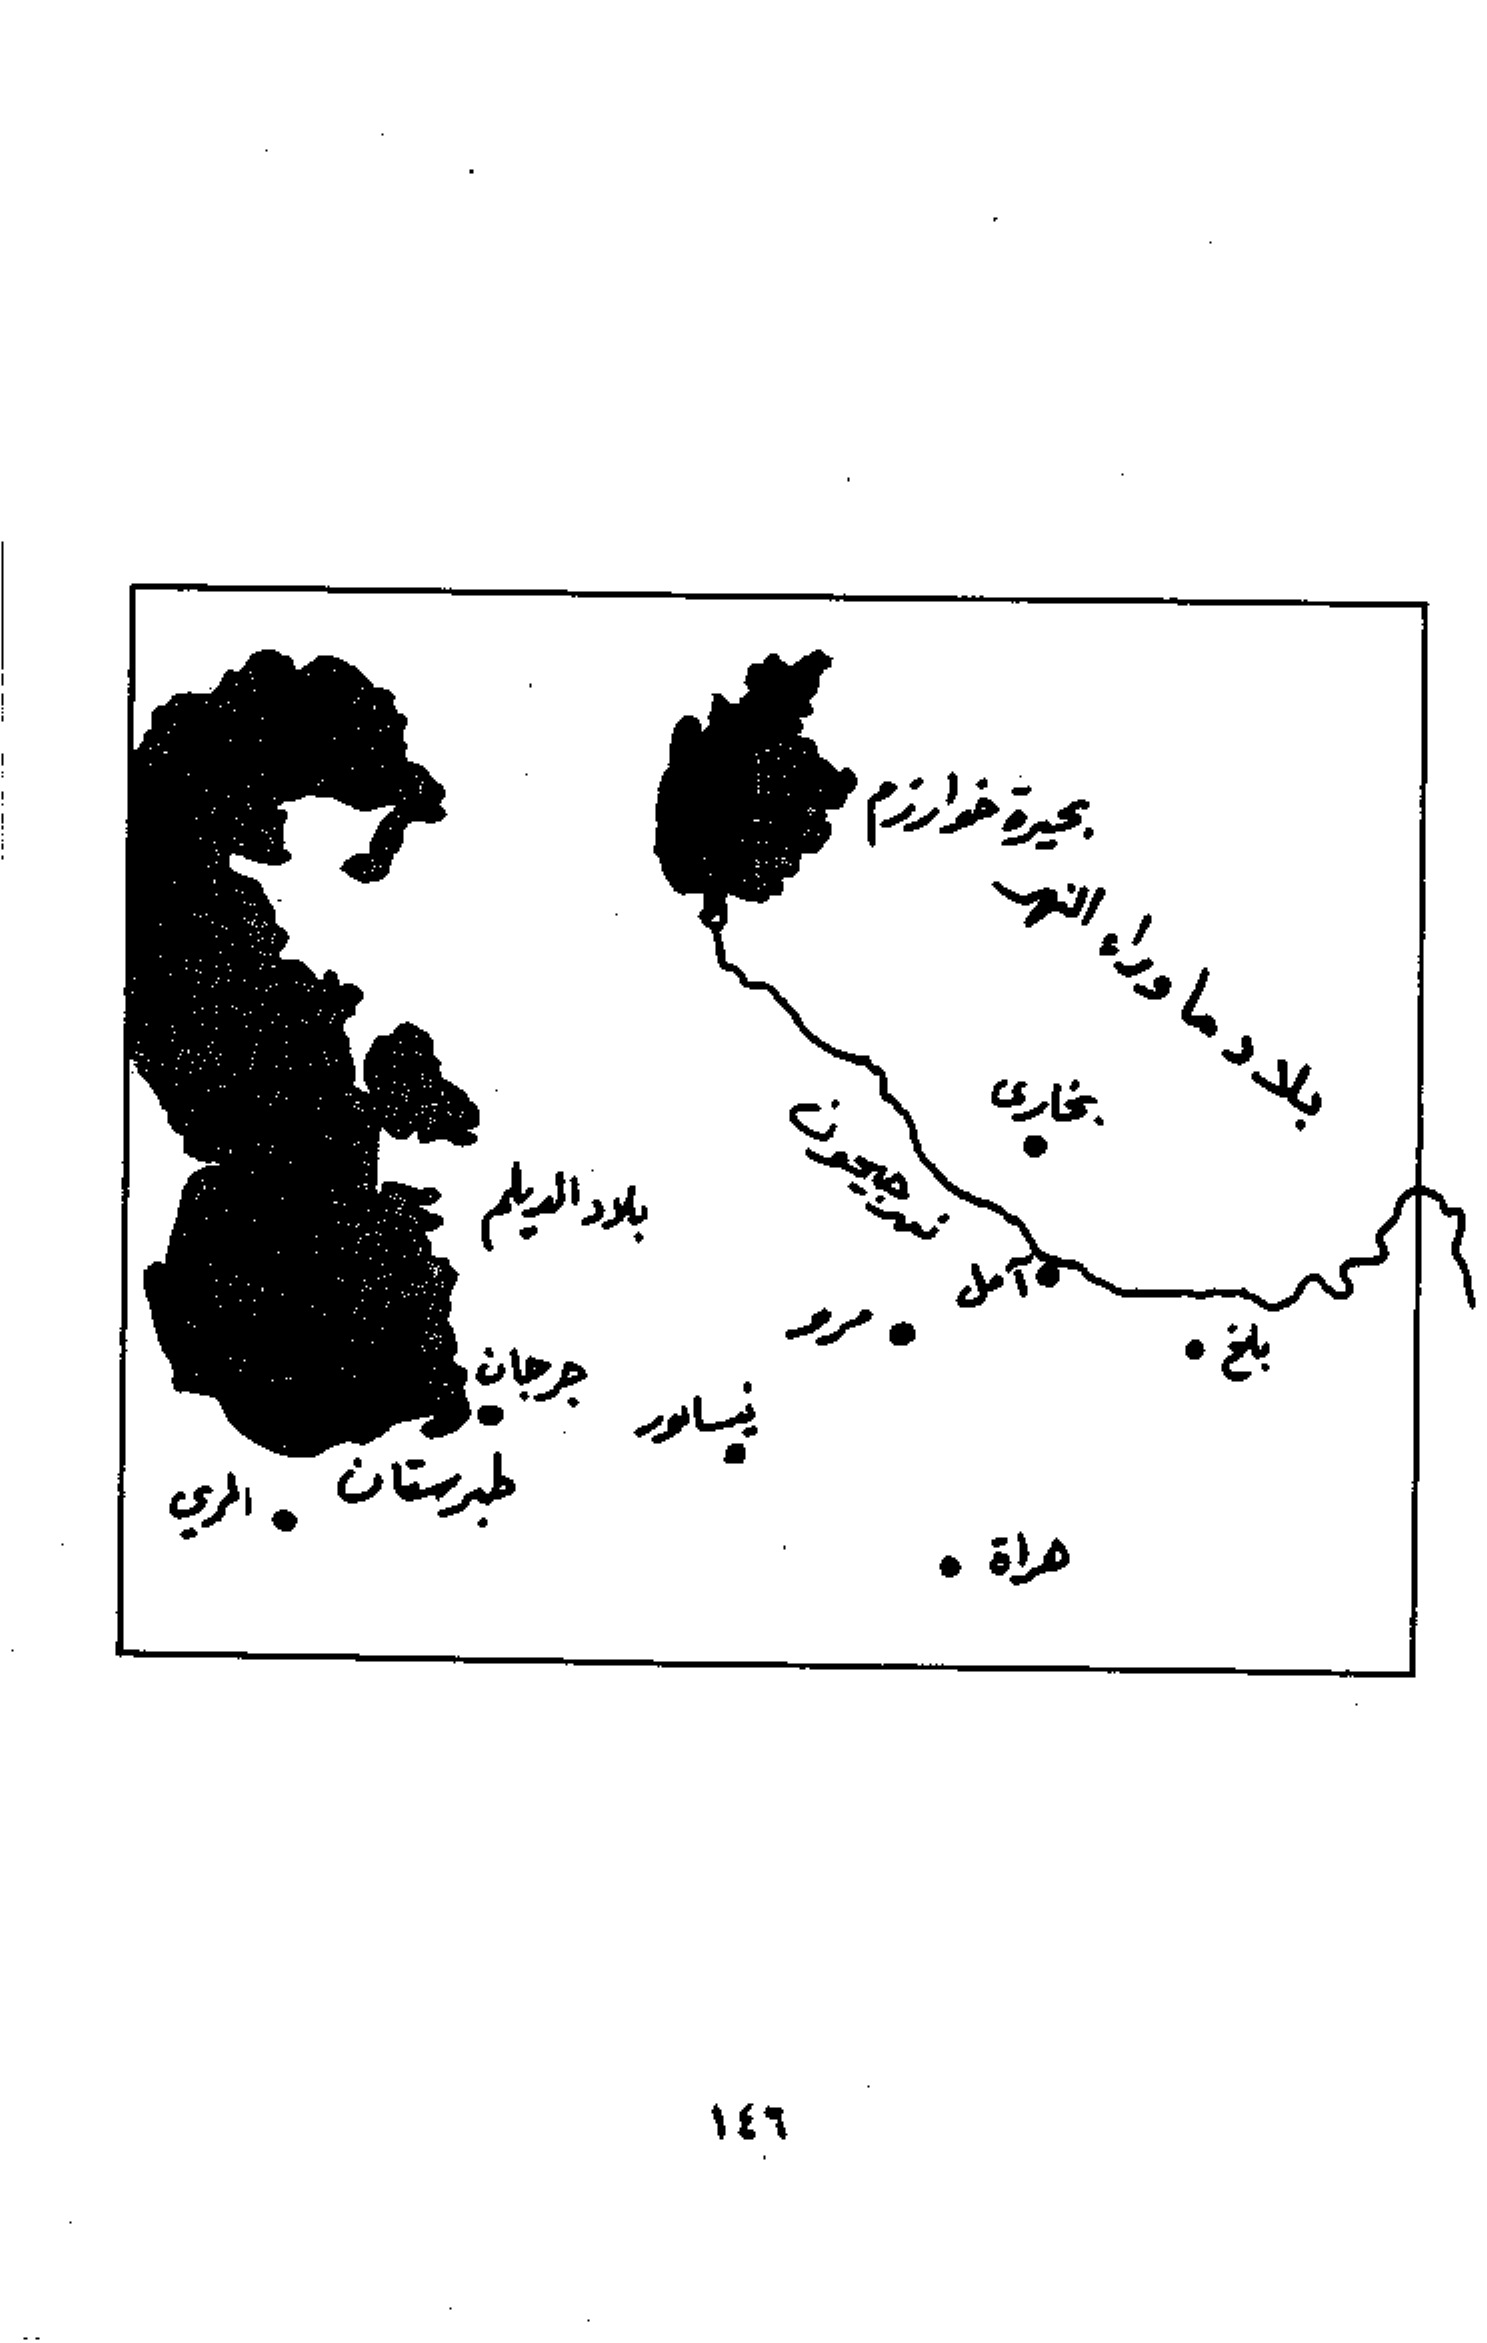 بحيرة خوارزم
بلاد ما وراء النهر
بخارى
نهر جيحون
بلاد الديلم
آمل
مرو
بلخ
جرجان
نيسابور
طبرستان
الري
هراة
١٤٦